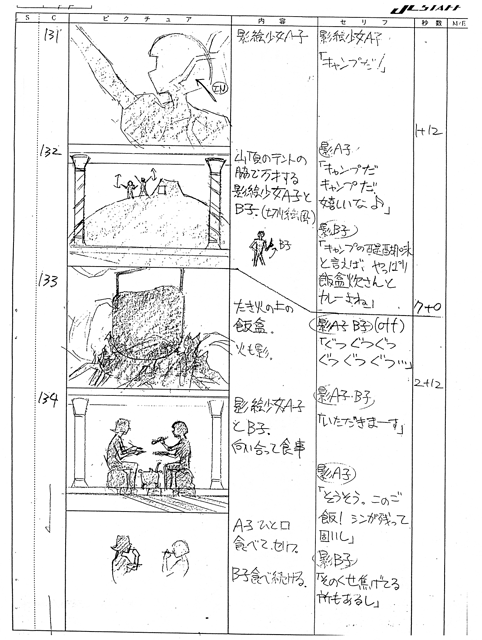 J.C.STAFF
S
C
ピクチュア
内容
セリフ
秒数
M・E
131
IN
影絵少女A子
影絵少女A子
「キャンプだ!」
1+12
132
山頂のテントの
脇で万才する
影絵少女A子と
B子.(切り絵風)
B子
影A子
「キャンプだ
キャンプだ
嬉しいな♪」
影B子
「キャンプの醍醐味
と言えば、やっぱり
飯盒炊さんと
カレーよねぇ」
7+0
133
たき火の上の
飯盒.
火も影.
影A子 B子 (off)
「ぐつぐつぐつ
ぐつぐつぐつ…」
2+12
134
影絵少女A子
とB子.
向い合って食事
影A子・B子
「いただきまーす」
影A子
「そうそう。このご
飯!シンが残って
固いし」
A子ひと口
食べて、セリフ.
B子食べ続ける.
影B子
「そのくせ焦げてる
所もあるし」